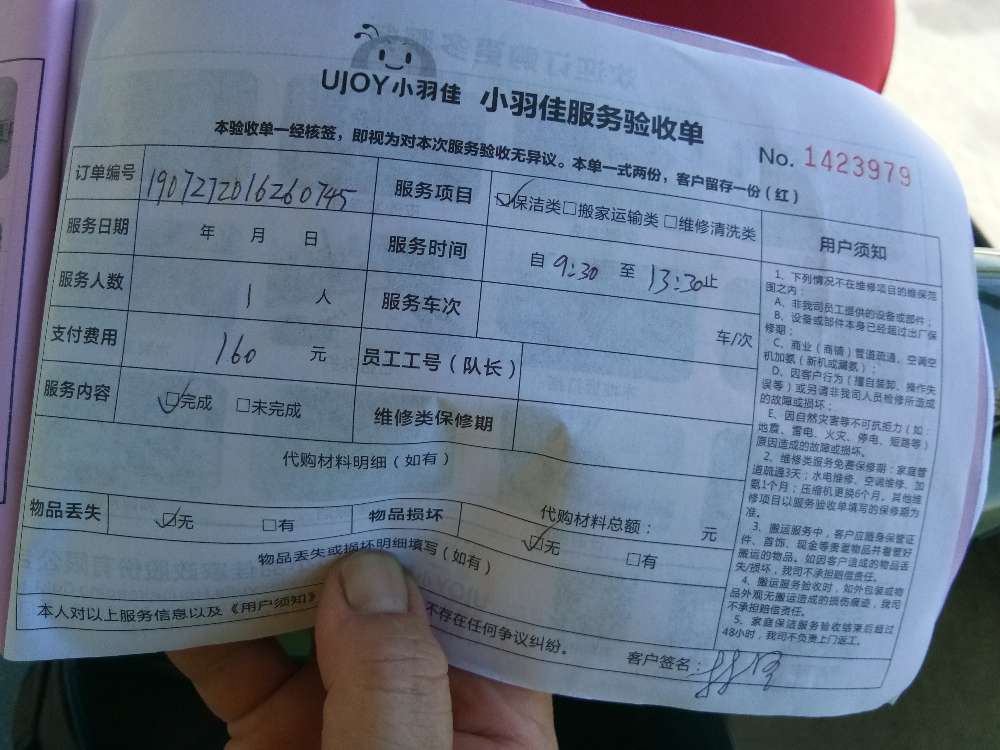 UJOY小羽佳 小羽佳服务验收单
本验收单一经核签，即视为对本次服务验收无异议。本单一式两份，客户留存一份（红）
No. 1423979
订单编号 19072720162607​45 服务项目 保洁类 搬家运输类 维修清洗类
服务日期 年 月 日 服务时间 自 9:30 至 13:30止
服务人数 1 人 服务车次 车/次
支付费用 160 元 员工工号（队长）
服务内容 完成 未完成 维修类保修期
代购材料明细（如有）
代购材料总额： 元
物品丢失 无 有 物品损坏 无 有
物品丢失或损坏明细填写（如有）
本人对以上服务信息以及《用户须知》 不存在任何争议纠纷。
客户签名：
用户须知
1、下列情况不在维修项目的维保范
围之内：
A、非我司员工提供的设备或部件；
B、设备或部件本身已经超过出厂保
修期；
C、商业（商铺）管道疏通、空调空
机加氨（新机或漏氨）；
D、因客户行为（擅自装卸、操作失
误等）或另请非我司人员检修所造成
的故障或损坏；
E、因自然灾害等不可抗拒力（如：
地震、雷电、火灾、停电、短路等）
原因造成的故障或损坏。
2、维修类服务免费保修期：家庭管
道疏通3天；水电维修、空调维修、加
氨1个月；压缩机更换6个月，其他维
修项目以服务验收单填写的保修期为
准。
3、搬运服务中，客户应随身保管证
件、首饰、现金等贵重物品并看管好
搬运的物品。如因客户造成的物品丢
失/损坏，我司不承担赔偿责任。
4、搬运服务验收时，如外包装或物
品外观无搬运造成的损伤痕迹，我司
不承担赔偿责任。
5、家庭保洁服务验收结束后超过
48小时，我司不负责上门返工。